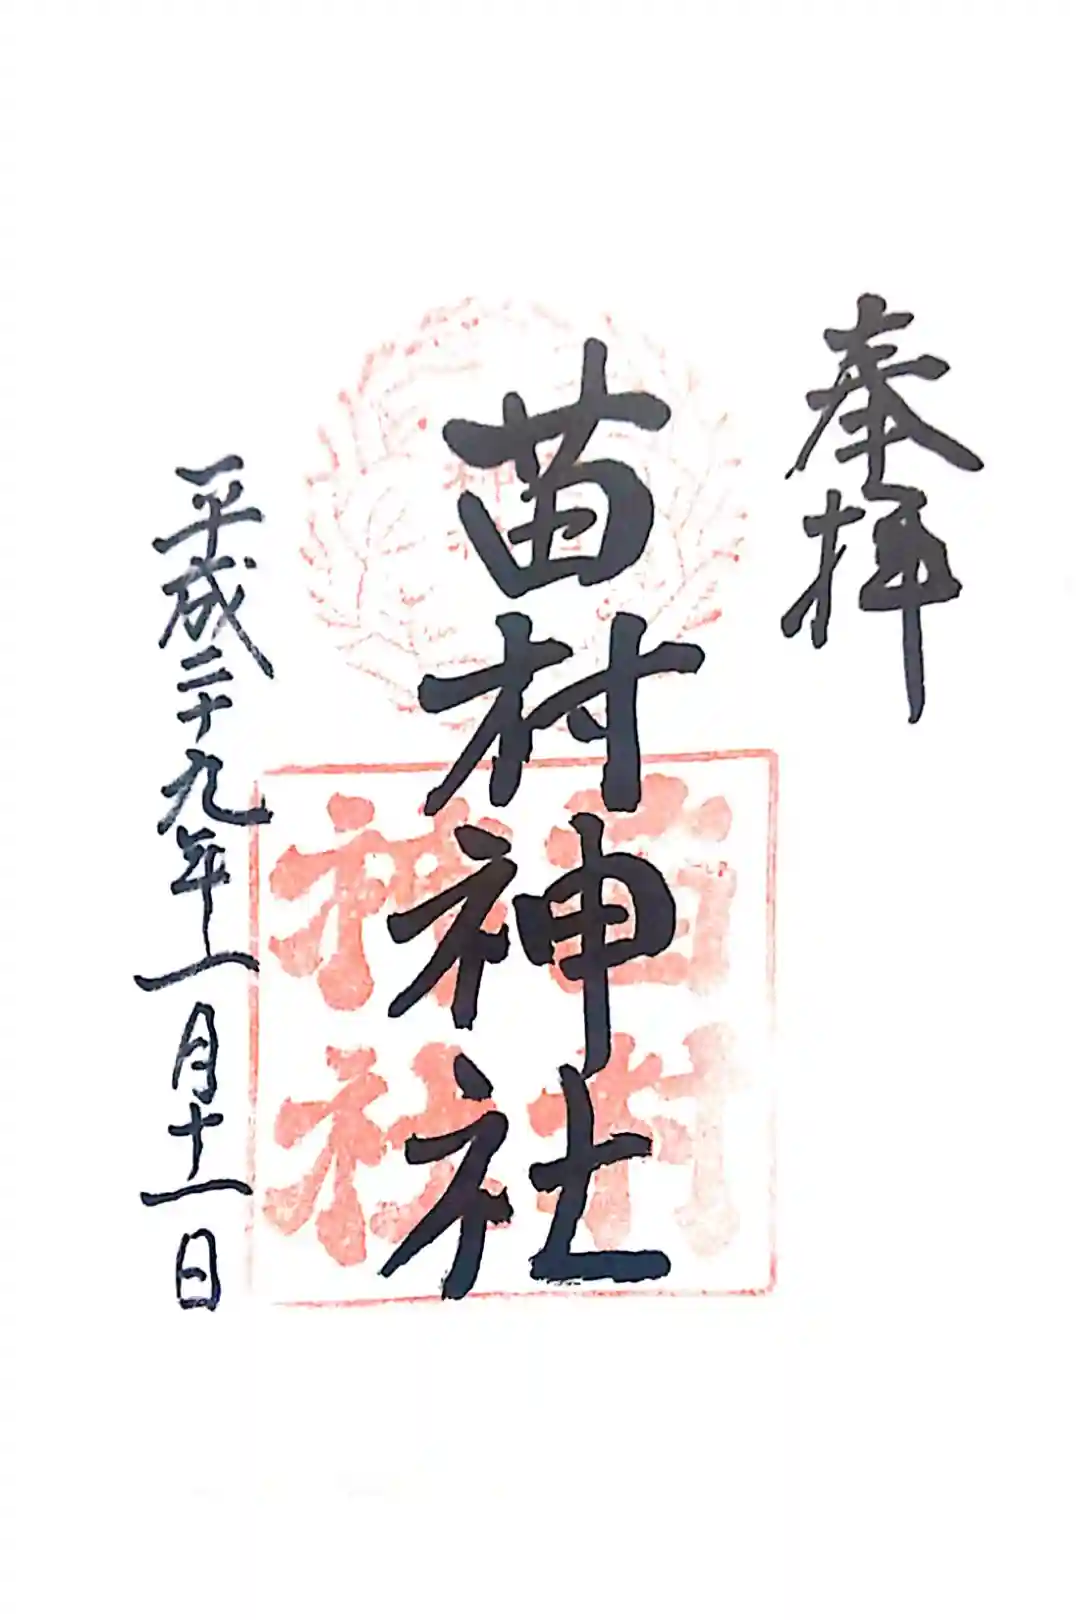 奉拝
苗村神社
苗村
神社
平成二十九年一月十一日